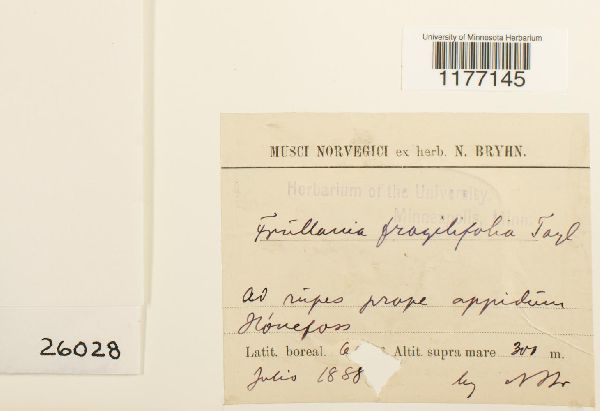 University of Minnesota Herbarium
1177145
MUSCI NORVEGICI ex herb. N. BRYHN.
Herbarium of the University,
Minneapolis, Minn.
Frullania fragilifolia Tayl
Ad rupes prope oppidum
Hónefoss
Latit. boreal. Altit. supra mare 300 m.
Julio 1888 leg N Br
26028